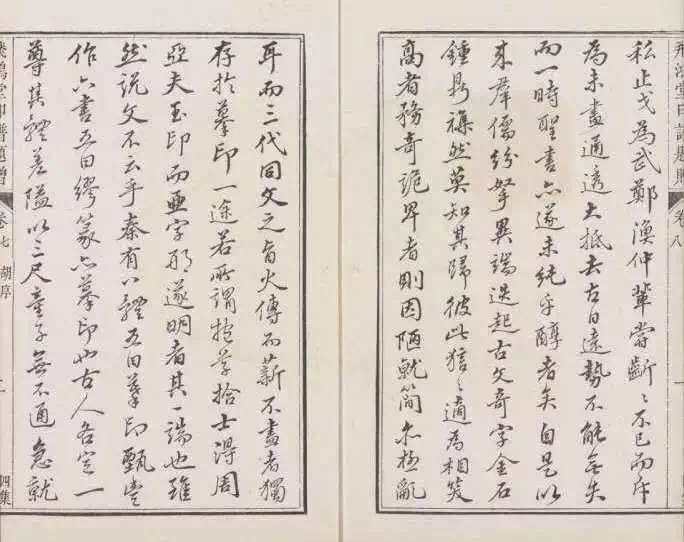 私止戈為武鄭漁仲輩嘗齗〻不已而斥
為未盡通透大抵去古日遠勢不能無失
而一時聖書亦遂未純乎醇者矣自是以
來羣儒紛拏異端迭起古文奇字金石
鍾鼎襍然莫知其歸彼此狺〻適為相笑
高者務奇詭卑者則因陋就簡亦極亂
耳而三代同文之旨火傳而薪不盡者獨
存於摹印一途若所謂抱芋拾土得周
亞夫玉印而亞字形遂明者其一端也雖
然說文不云乎秦有八體五曰摹印甄豐
作六書五曰繆篆亦摹印也古人各定一
尊其體差隘以三尺童子無不通急就
飛鴻堂印譜題贈
卷八
飛鴻堂印譜題贈
卷七
胡序
四集